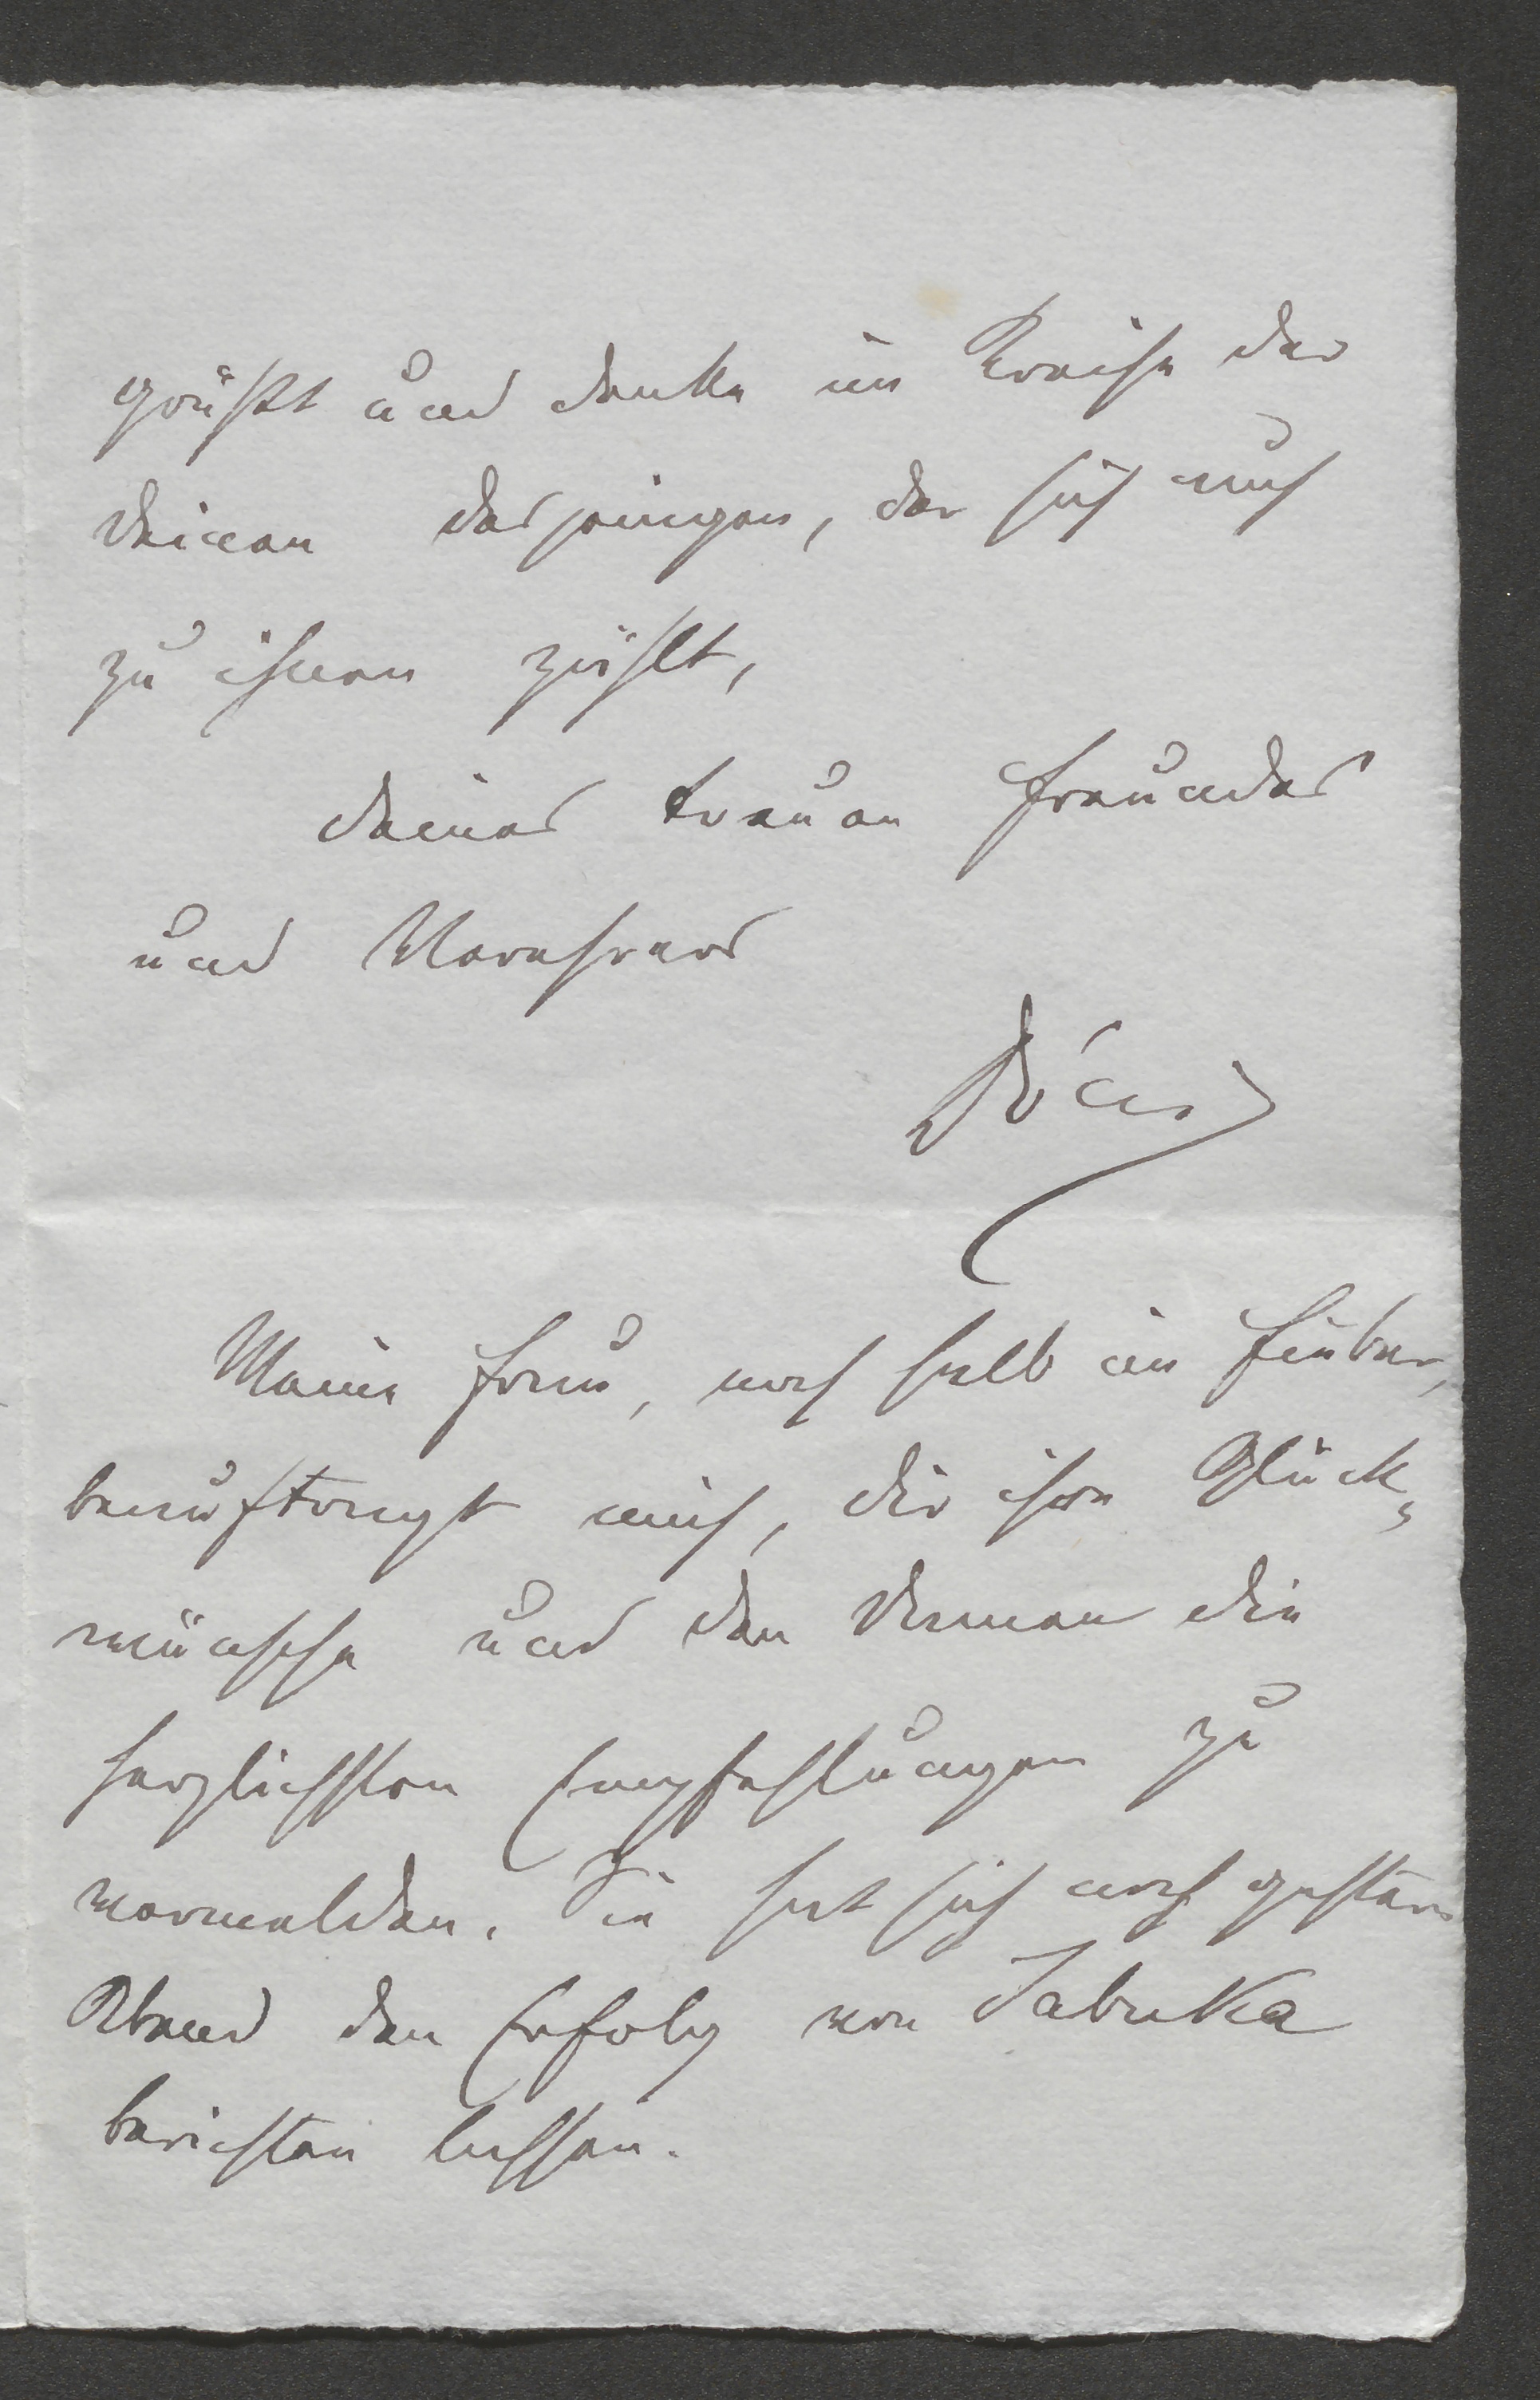 grüßt und denke im Kreise der
Deinen desjenigen, der sich auch
zu ihnen zählt,
deines treuen Freundes
und Verehrers
Dóczi
Meine Frau, noch halb im Fieber,
beauftragt mich, dir ihre Glück-
wünsche und den Damen die
herzlichsten Empfehlungen zu
vermelden. Sie hat sich noch gestern
Abend den Erfolg von Jabuka
berichten lassen.